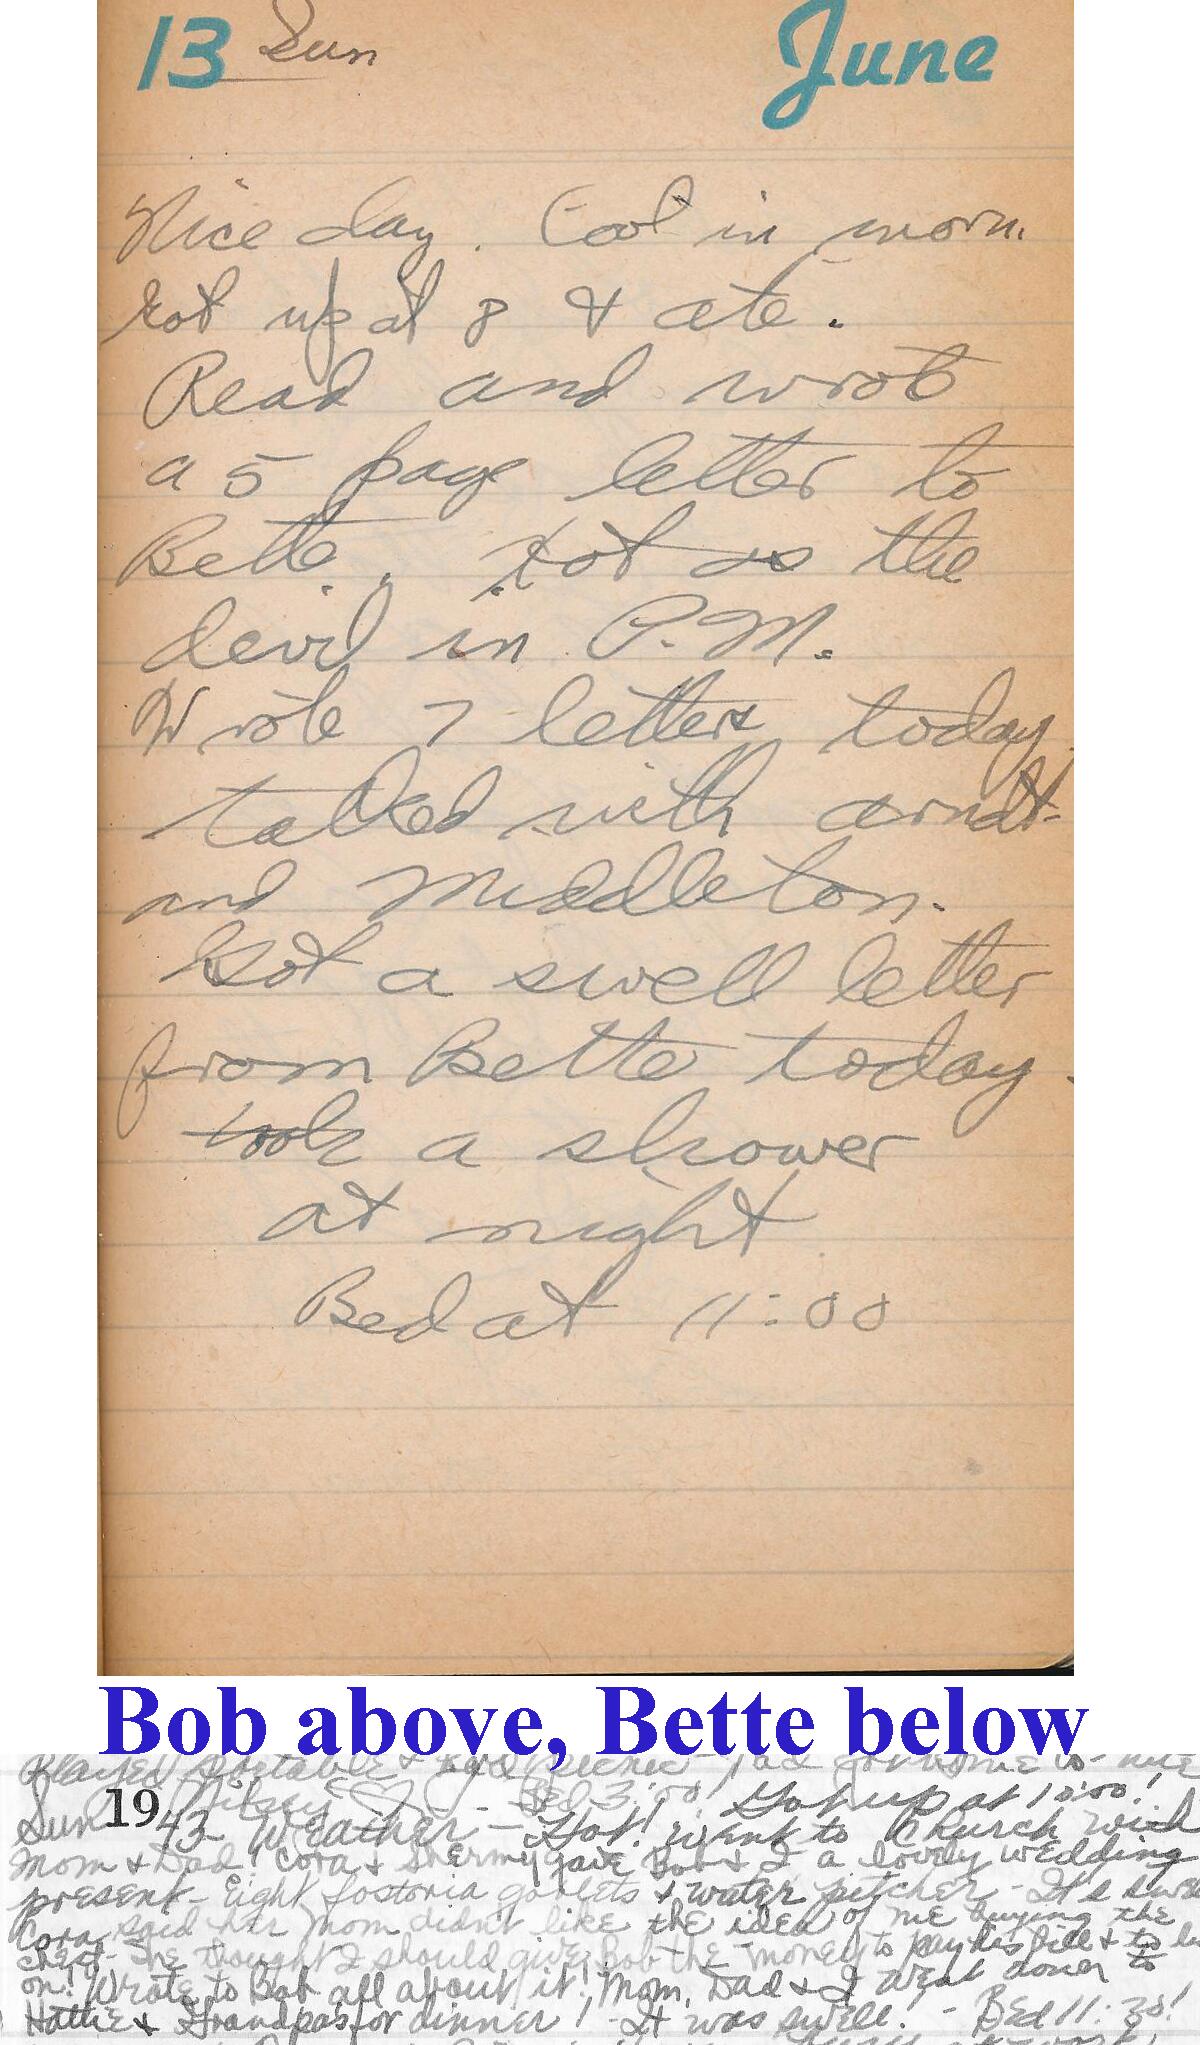 13 Sun June
Nice day. Cool in morn.
Got up at 8 & ate.
Read and wrote
a 5 page letter to
Bette. Hot as the
devil in P.M.
Wrote 7 letters today
talked with Arndt
and Middleton.
Got a swell letter
from Bette today.
Took a shower
at night
Bed at 11:00
Bob above, Bette below
Played portable &
Bed 3:00! Got up at 10:00!
Sun 1943 - Weather - Hot! Went to Church with
Mom & Dad! Cora & Shermy gave Bob & I a lovely wedding
present - Eight fostoria goblets & water pitcher - It's swell
Cora said her Mom didn't like the idea of me buying the
chest - She thought I should give Bob the money to pay his bill & to
on! Wrote to Bob all about it! Mom, Dad & I went down to
Hattie & Grandpa's for dinner! It was swell! - Bed 11:30!